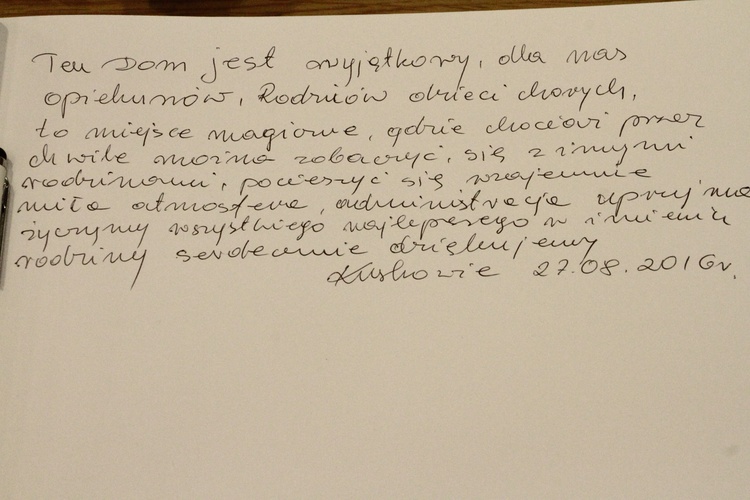 Ten Dom jest wyjątkowy, dla nas
opiekunów, Rodziców dzieci chorych,
to miejsce magiczne, gdzie chociaż przez
chwile można zobaczyć, się z innymi
rodzinami, pocieszyć się wzajemnie
miła atmosfera, administracja uprzejma
życzymy wszystkiego najlepszego w imieniu
rodziny serdecznie dziękujemy
27.08.2016r.